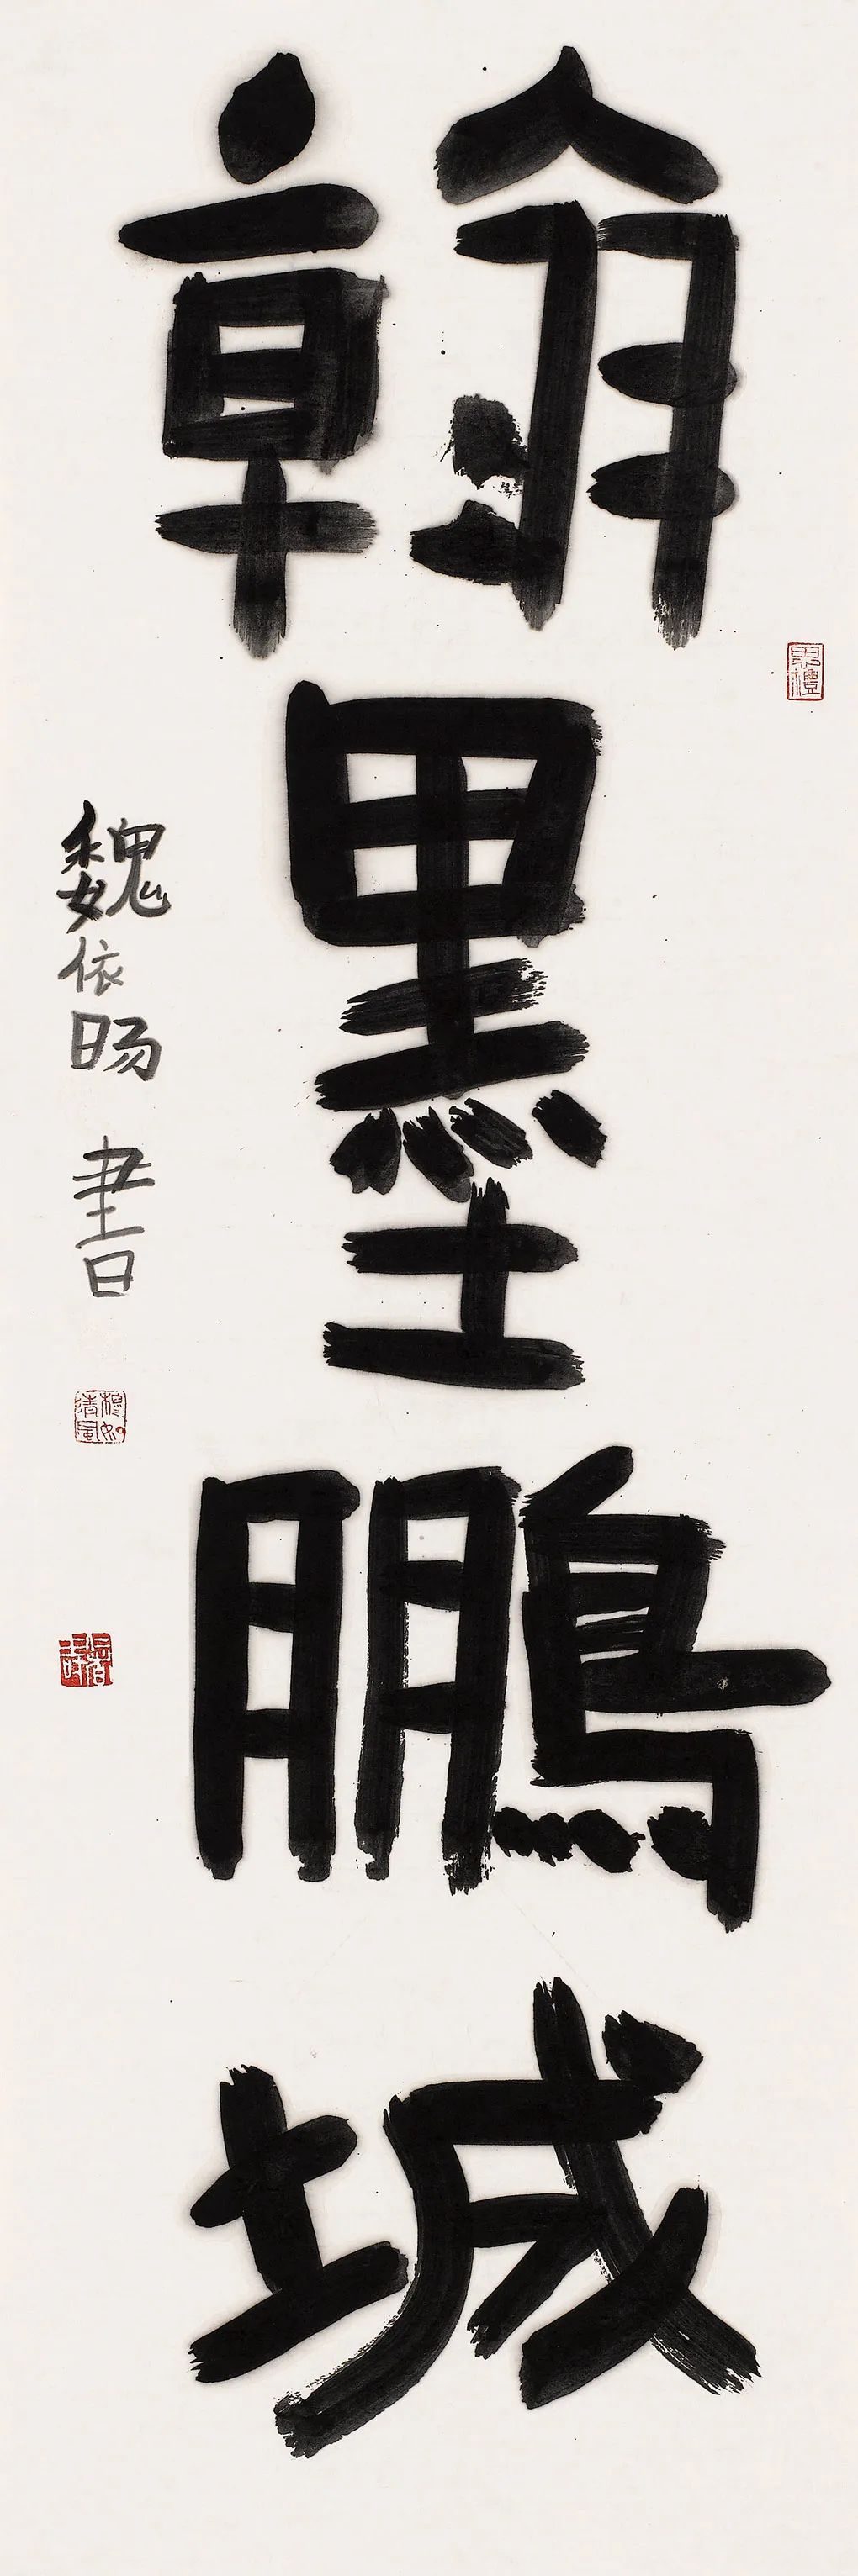 翰墨鹏城
魏依旸 書